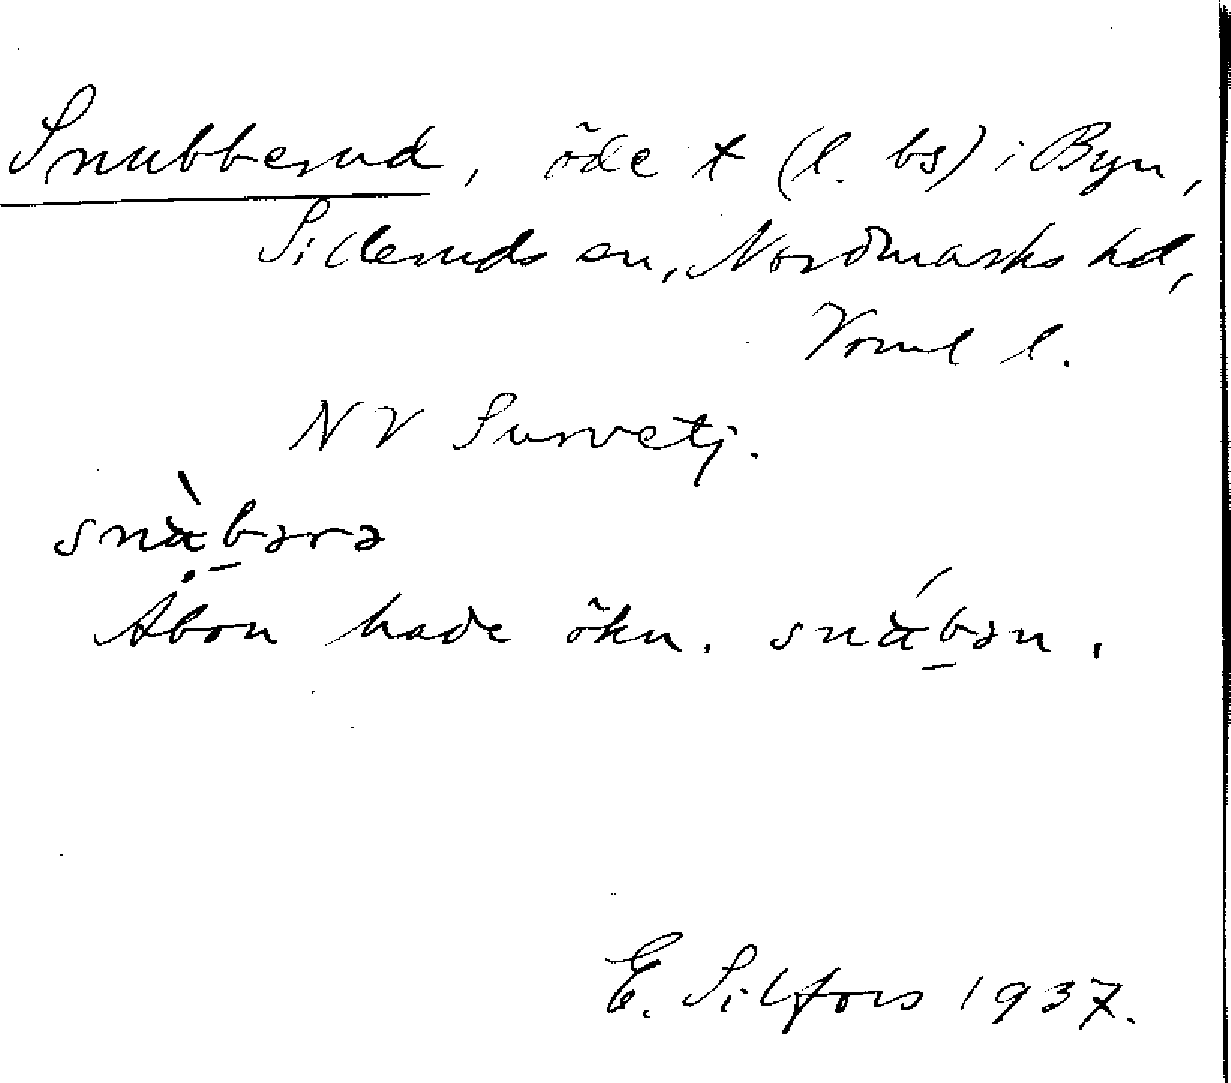 Snubberud, öde t (l. bs) i Byn,
Silleruds sn, Nordmarks hd,
Värml l.
NV Survetj.
Åbon hade ökn.
E. Silfors 1937.